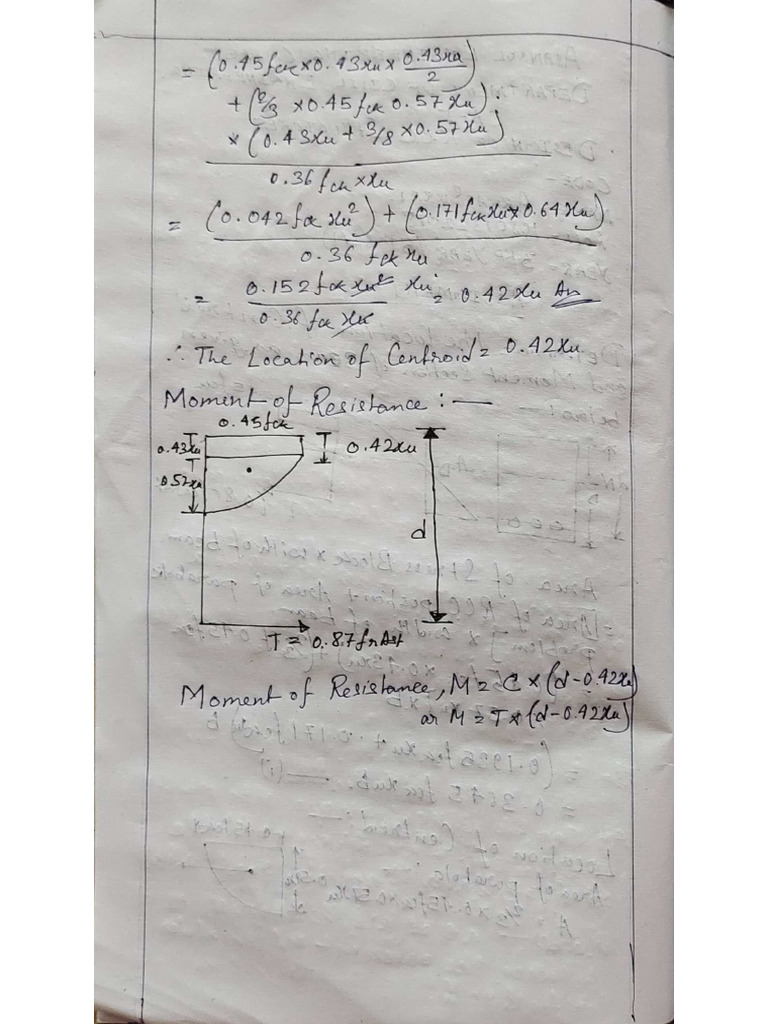 = (0.45fck×0.43xu × 0.43xu/2)
+ (2/3 ×0.45fck 0.57xu)
× (0.43xu + 3/8 ×0.57xu)
0.36 fck×xu
= (0.042fck xu²) + (0.171fckxu×0.64xu)
0.36 fck xu
= 0.152fck xu² xu = 0.42xu An
0.36 fck xu
∴ The Location of Centroid = 0.42xu
Moment of Resistance : —
0.45fck
0.43xu
0.42xu
0.57xu
d
T = 0.87fyAst
Moment of Resistance, M = C × (d-0.42xu)
or M = T × (d-0.42xu)